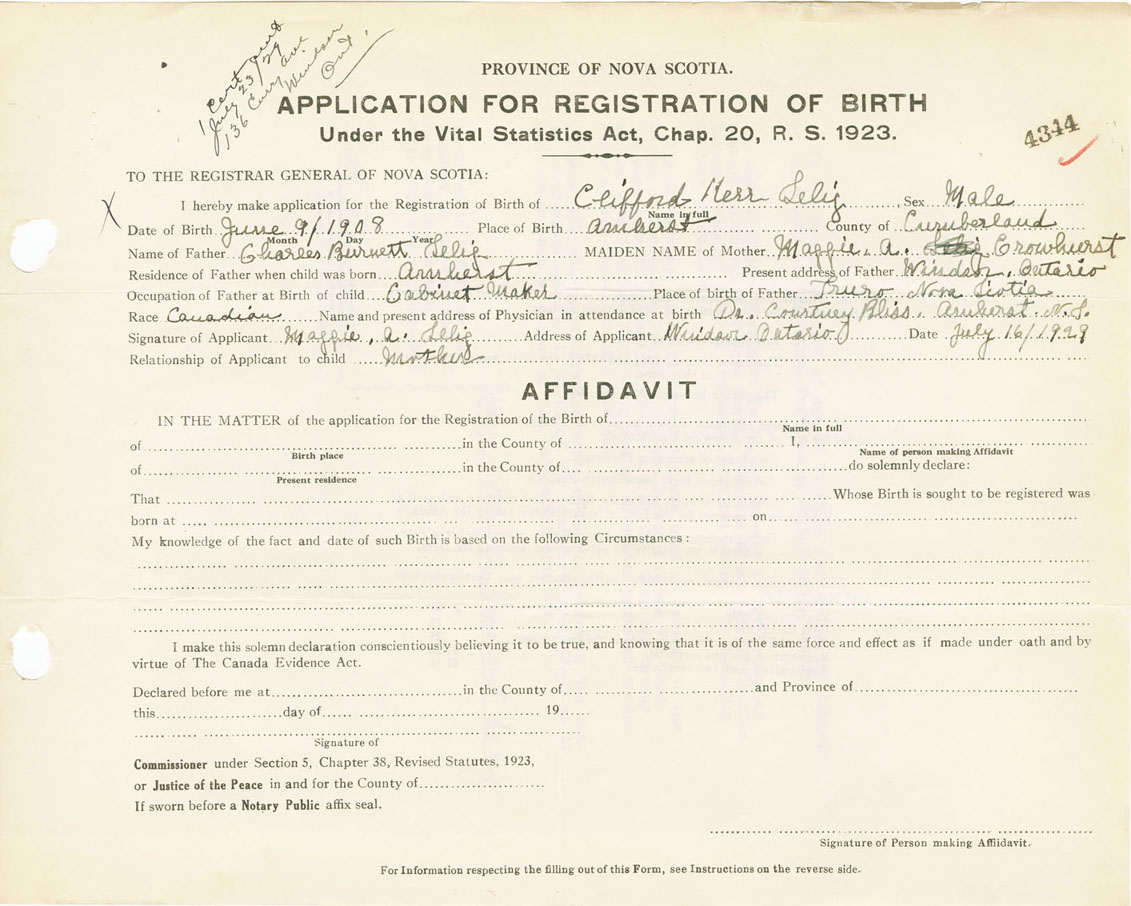 1 cert and
July 23/29
136 Curry ave.
Windsor
Ont.
PROVINCE OF NOVA SCOTIA.
APPLICATION FOR REGISTRATION OF BIRTH
Under the Vital Statistics Act, Chap. 20, R. S. 1923.
4344
TO THE REGISTRAR GENERAL OF NOVA SCOTIA:
X
I hereby make application for the Registration of Birth of Clifford Kerr Selig, Sex Male
Name in full
Date of Birth June 9/1908 Place of Birth Amherst County of Cumberland
Month Day Year
Name of Father Charles Burnett Selig MAIDEN NAME of Mother Maggie. A. Selig Crowhurst
Residence of Father when child was born Amherst Present address of Father Windsor, Ontario
Occupation of Father at Birth of child Cabinet Maker Place of birth of Father Truro Nova Scotia
Race Canadian Name and present address of Physician in attendance at birth Dr. Courtney Bliss. Amherst N.S.
Signature of Applicant Maggie. A. Selig Address of Applicant Windsor Ontario Date July 16/1929
Relationship of Applicant to child Mother
AFFIDAVIT
IN THE MATTER of the application for the Registration of the Birth of
Name in full
of in the County of I,
Birth place Name of person making Affidavit
of in the County of do solemnly declare:
Present residence
That Whose Birth is sought to be registered was
born at on
My knowledge of the fact and date of such Birth is based on the following Circumstances:
I make this solemn declaration conscientiously believing it to be true, and knowing that it is of the same force and effect as if made under oath and by
virtue of The Canada Evidence Act.
Declared before me at in the County of and Province of
this day of 19
Signature of
Commissioner under Section 5, Chapter 38, Revised Statutes, 1923,
or Justice of the Peace in and for the County of
If sworn before a Notary Public affix seal.
Signature of Person making Affiidavit.
For Information respecting the filling out of this Form, see Instructions on the reverse side.